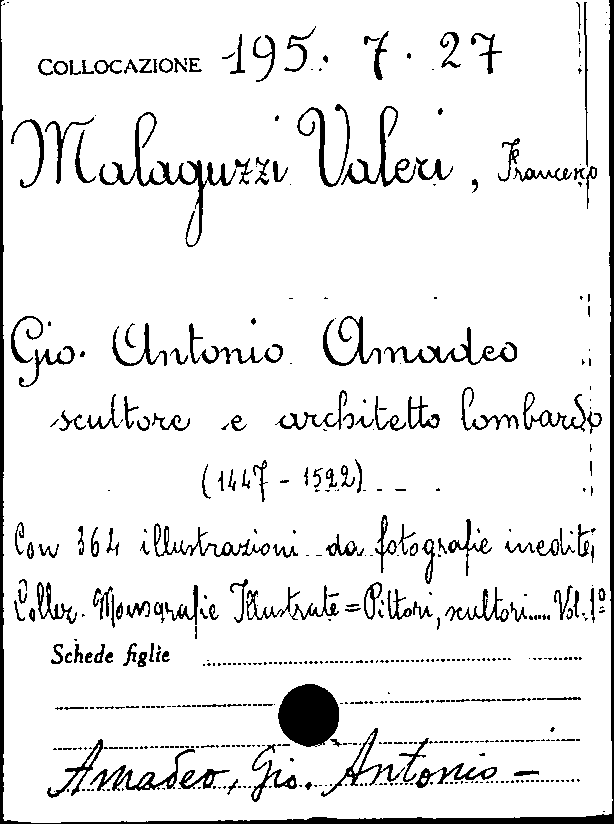 COLLOCAZIONE 195. 7. 27
Malaguzzi Valeri, Francesco
Gio. Antonio Amadeo
scultore e architetto lombardo
(1447 - 1522)
Con 364 illustrazioni da fotografie inedite
Collez. Monografie Illustrate = Pittori, scultori..... Vol. 1º
Schede figlie
Amadeo, Gio. Antonio -